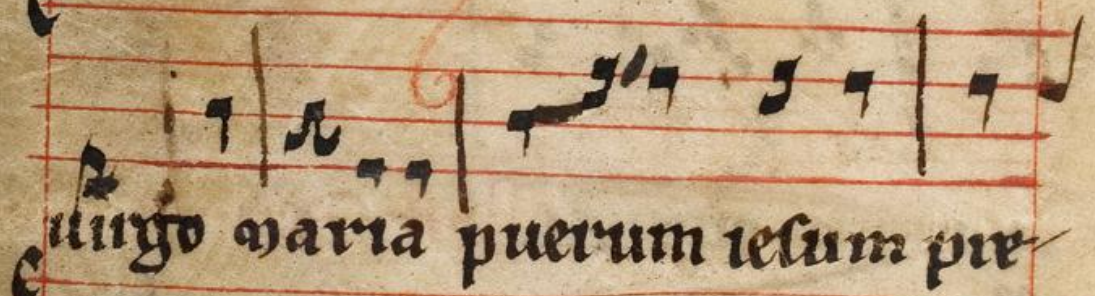 uirgo maria puerum iesum pre-